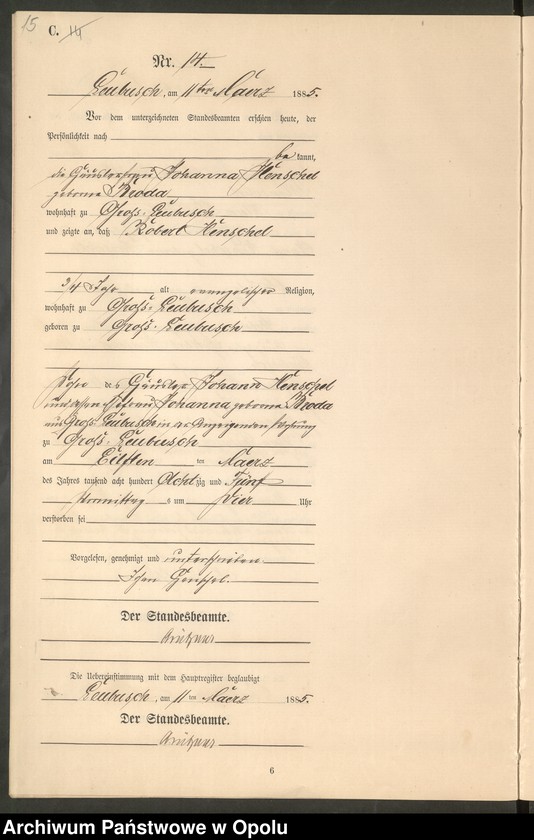 15 C. 14
Nr. 14.
Leubusch, am 11ten Maerz 1885.
Vor dem unterzeichneten Standesbeamten erschien heute, der
Persönlichkeit nach
be kannt,
die Häuslerfrau Johanna Henschel
geborne Kroda
wohnhaft zu Gross-Leubusch
und zeigte an, daß Robert Henschel
3/4 Jahr alt evangelischer Religion,
wohnhaft zu Gross-Leubusch
geboren zu Gross-Leubusch
Sohn des Häusler Johann Henschel
und dessen Ehefrau Johanna geborne Kroda
aus Gross-Leubusch in der Anzeigenden Wohnung
zu Gross-Leubusch
am Eilften ten Maerz
des Jahres tausend acht hundert Acht zig und Fünf
Vormittag s um Vier Uhr
verstorben sei
Vorgelesen, genehmigt und unterschrieben
Henschel.
Der Standesbeamte.
Die Uebereinstimmung mit dem Hauptregister beglaubigt
Leubusch, am 11 ten Maerz 1885.
Der Standesbeamte.
6
Archiwum Państwowe w Opolu